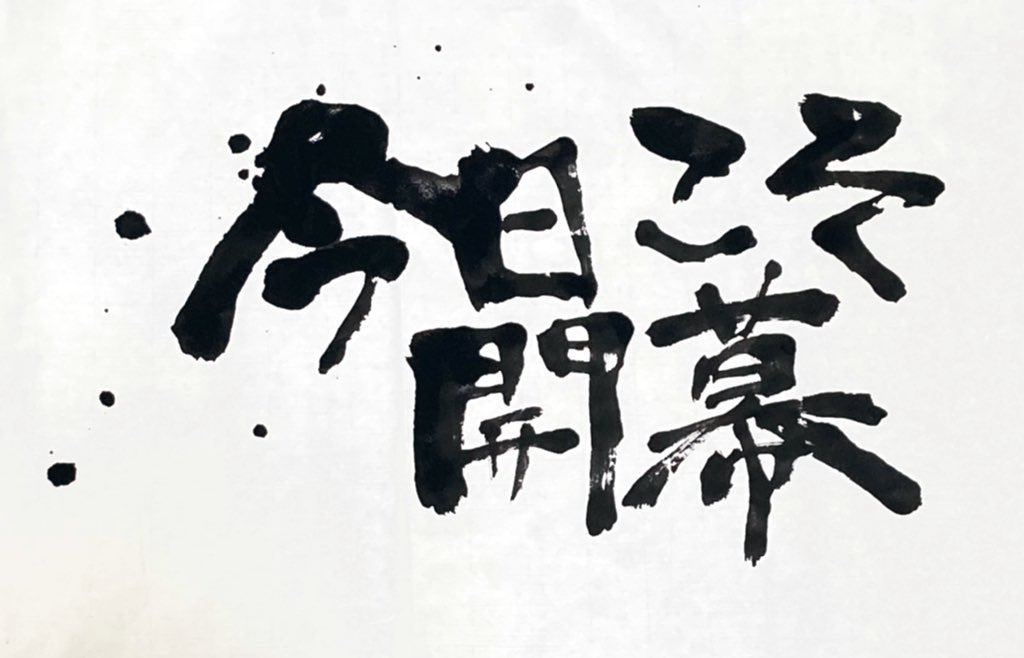 今日こそ
開幕